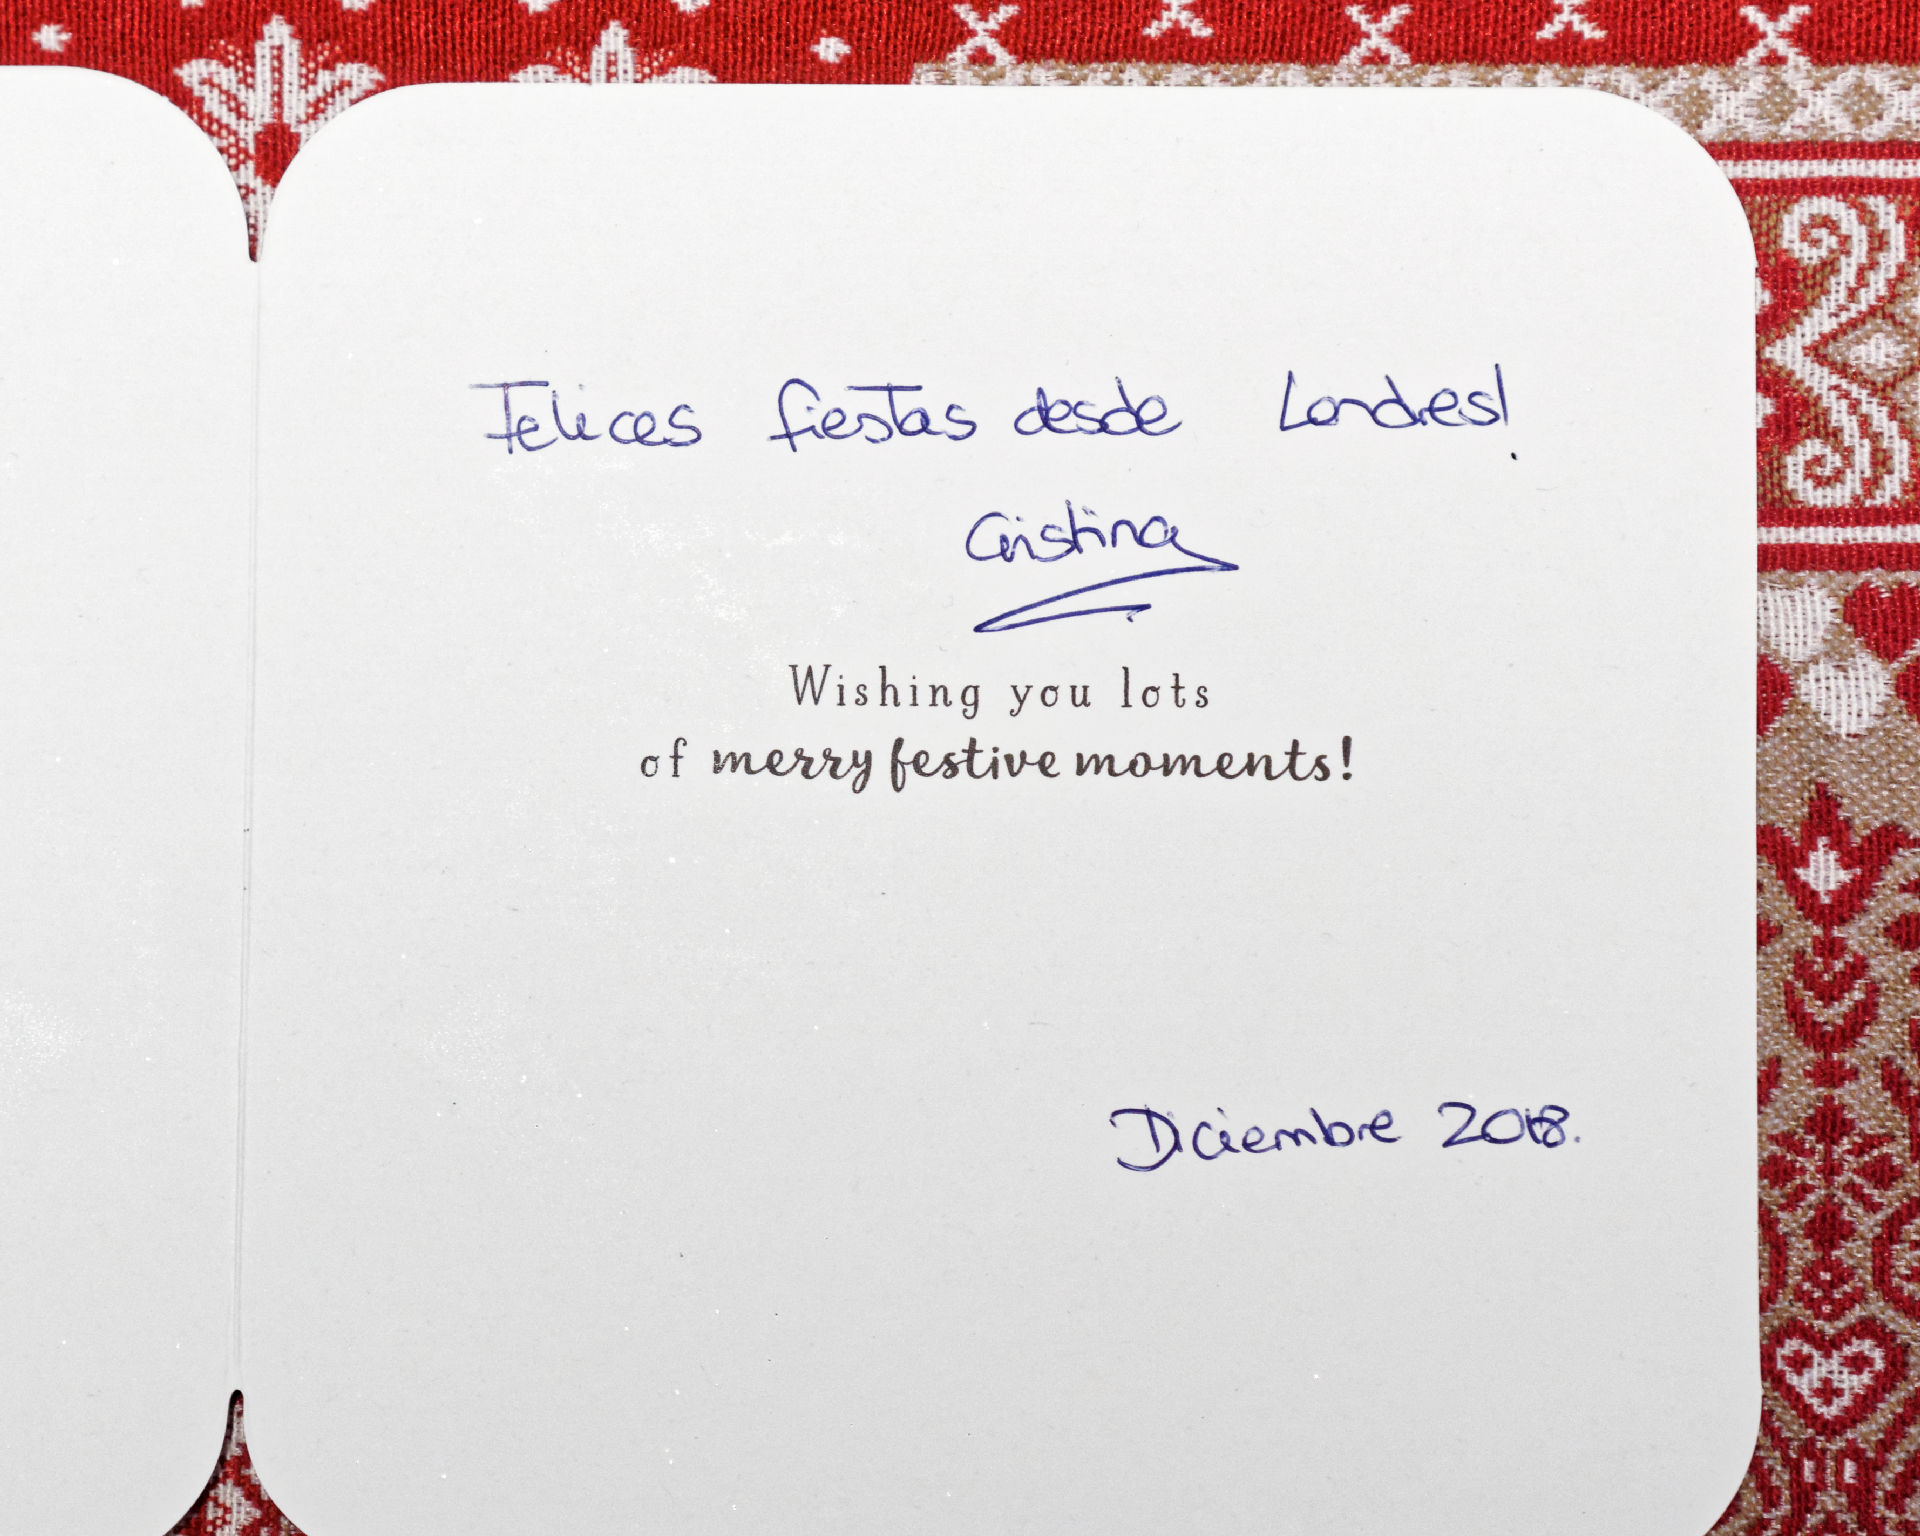 Felices fiestas desde Londres!
Cristina
Wishing you lots
of merry festive moments!
Diciembre 2018.